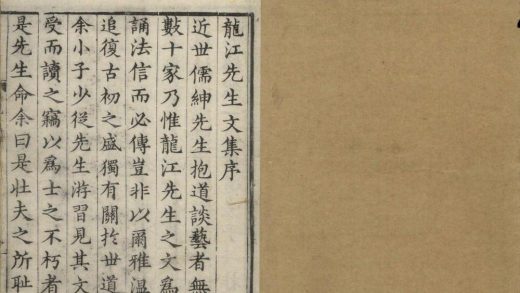 龍江先生文集序
近世儒紳先生抱道談藝者無
數十家乃惟龍江先生之文為
誦法信而必傳豈非以爾雅溫
追復古初之盛獨有關於世道
余小子少從先生游習見其文
受而讀之竊以為士之不朽者
是先生命余曰是壯夫之所恥